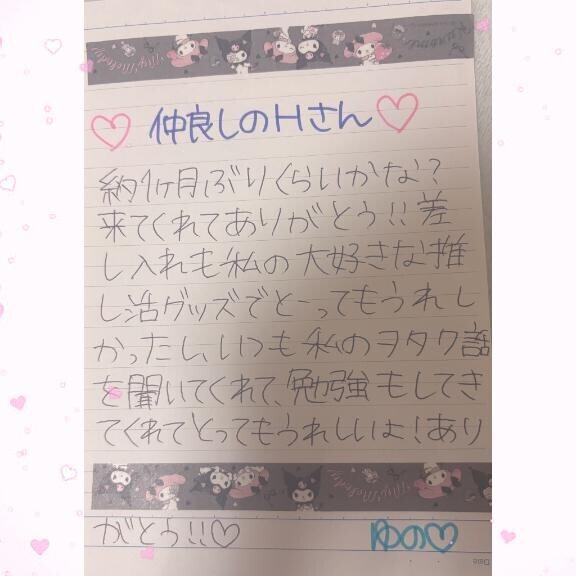 My Melody
Kuromi
♡ 仲良しのHさん ♡
約1ヶ月ぶりくらいかな?
来てくれてありがとう!!差
し入れも私の大好きな推
し活グッズでとーってもうれし
かったし、いつも私のヲタク話
を聞いてくれて、勉強もしてき
てくれてとってもうれしいよ!あり
My Melody
My Melody
がとう!!♡ ゆの♡
Date